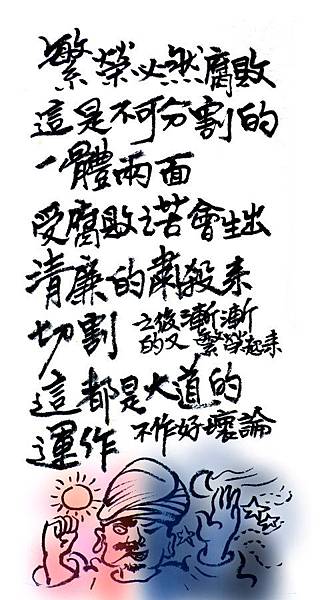 繁榮必然腐敗
這是不可分割的
一體兩面
受腐敗之苦會生出
清廉的肅殺来
切割 之後漸漸的又繁榮起来
這都是大道的
運作 不作好壞論